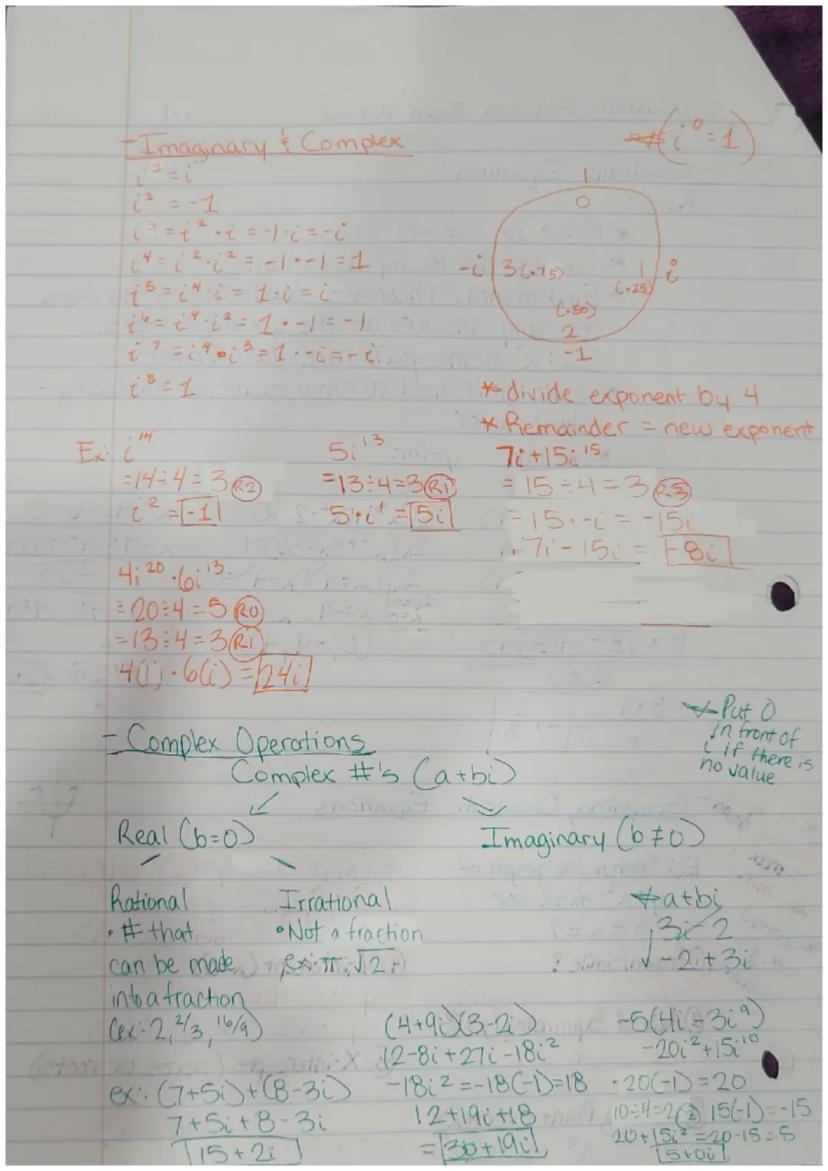 - Imaginary & Complex
* (i⁰ = 1)
i¹ = i
i² = -1
i³ = i² · i = -1 · i = -i
i⁴ = i² · i² = -1 · -1 = 1
i⁵ = i⁴ · i = 1 · i = i
i⁶ = i⁴ · i² = 1 · -1 = -1
i⁷ = i⁴ · i³ = 1 · -i = -i
i⁸ = 1
1
0
-i 3(.75) 1 i
(.25)
(.50)
2
-1
* divide exponent by 4
* Remainder = new exponent
Ex: i¹⁴
= 14 ÷ 4 = 3 R2
i² = -1
5i¹³
= 13 ÷ 4 = 3 R1
5 · i¹ = 5i
7i + 15i¹⁵
= 15 ÷ 4 = 3 R3
= 15 · -i = -15i
7i - 15i = -8i
4i²⁰ · 6i¹³
= 20 ÷ 4 = 5 R0
= 13 ÷ 4 = 3 R1
4(1) · 6(i) = 24i
- Complex Operations
* Put 0
in front of
i if there is
no value
Complex #'s (a+bi)
Real (b=0)
Imaginary (b≠0)
Rational
• # that
can be made
into a fraction
(ex: 2, 2/3, 16/9)
Irrational
• Not a fraction
ex: π, √2
* a+bi
3i - 2
-2 + 3i
ex: (7+5i)+(8-3i)
7+5i+8-3i
15+2i
(4+9i)(3-2i)
12-8i+27i-18i²
-18i² = -18(-1) = 18
12+19i+18
= 30+19i
-5(4i - 3i⁹)
-20i² + 15i¹⁰
-20(-1) = 20
10÷4=2 2 15(-1) = -15
20+15i² = 20-15 = 5
5+0i